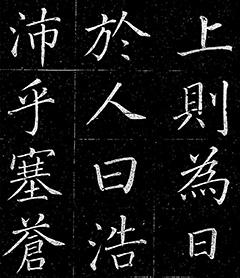 上則為日
於人曰浩
沛乎塞蒼